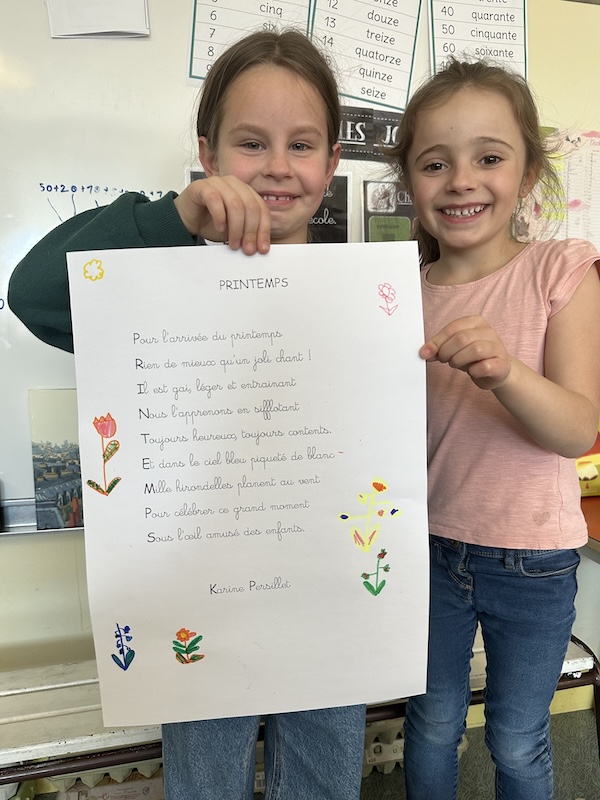 5 cinq
6 six
7
8
9
10
12 douze
13 treize
14 quatorze
quinze
seize
40 quarante
50 cinquante
60 soixante
école.
PRINTEMPS
Pour l'arrivée du printemps
Rien de mieux qu'un joli chant !
Il est gai, léger et entrainant
Nous l'apprenons en sifflotant
Toujours heureux, toujours contents.
Et dans le ciel bleu piqueté de blanc -
Mille hirondelles planent au vent
Pour célébrer ce grand moment
Sous l'œil amusé des enfants.
Karine Persillet